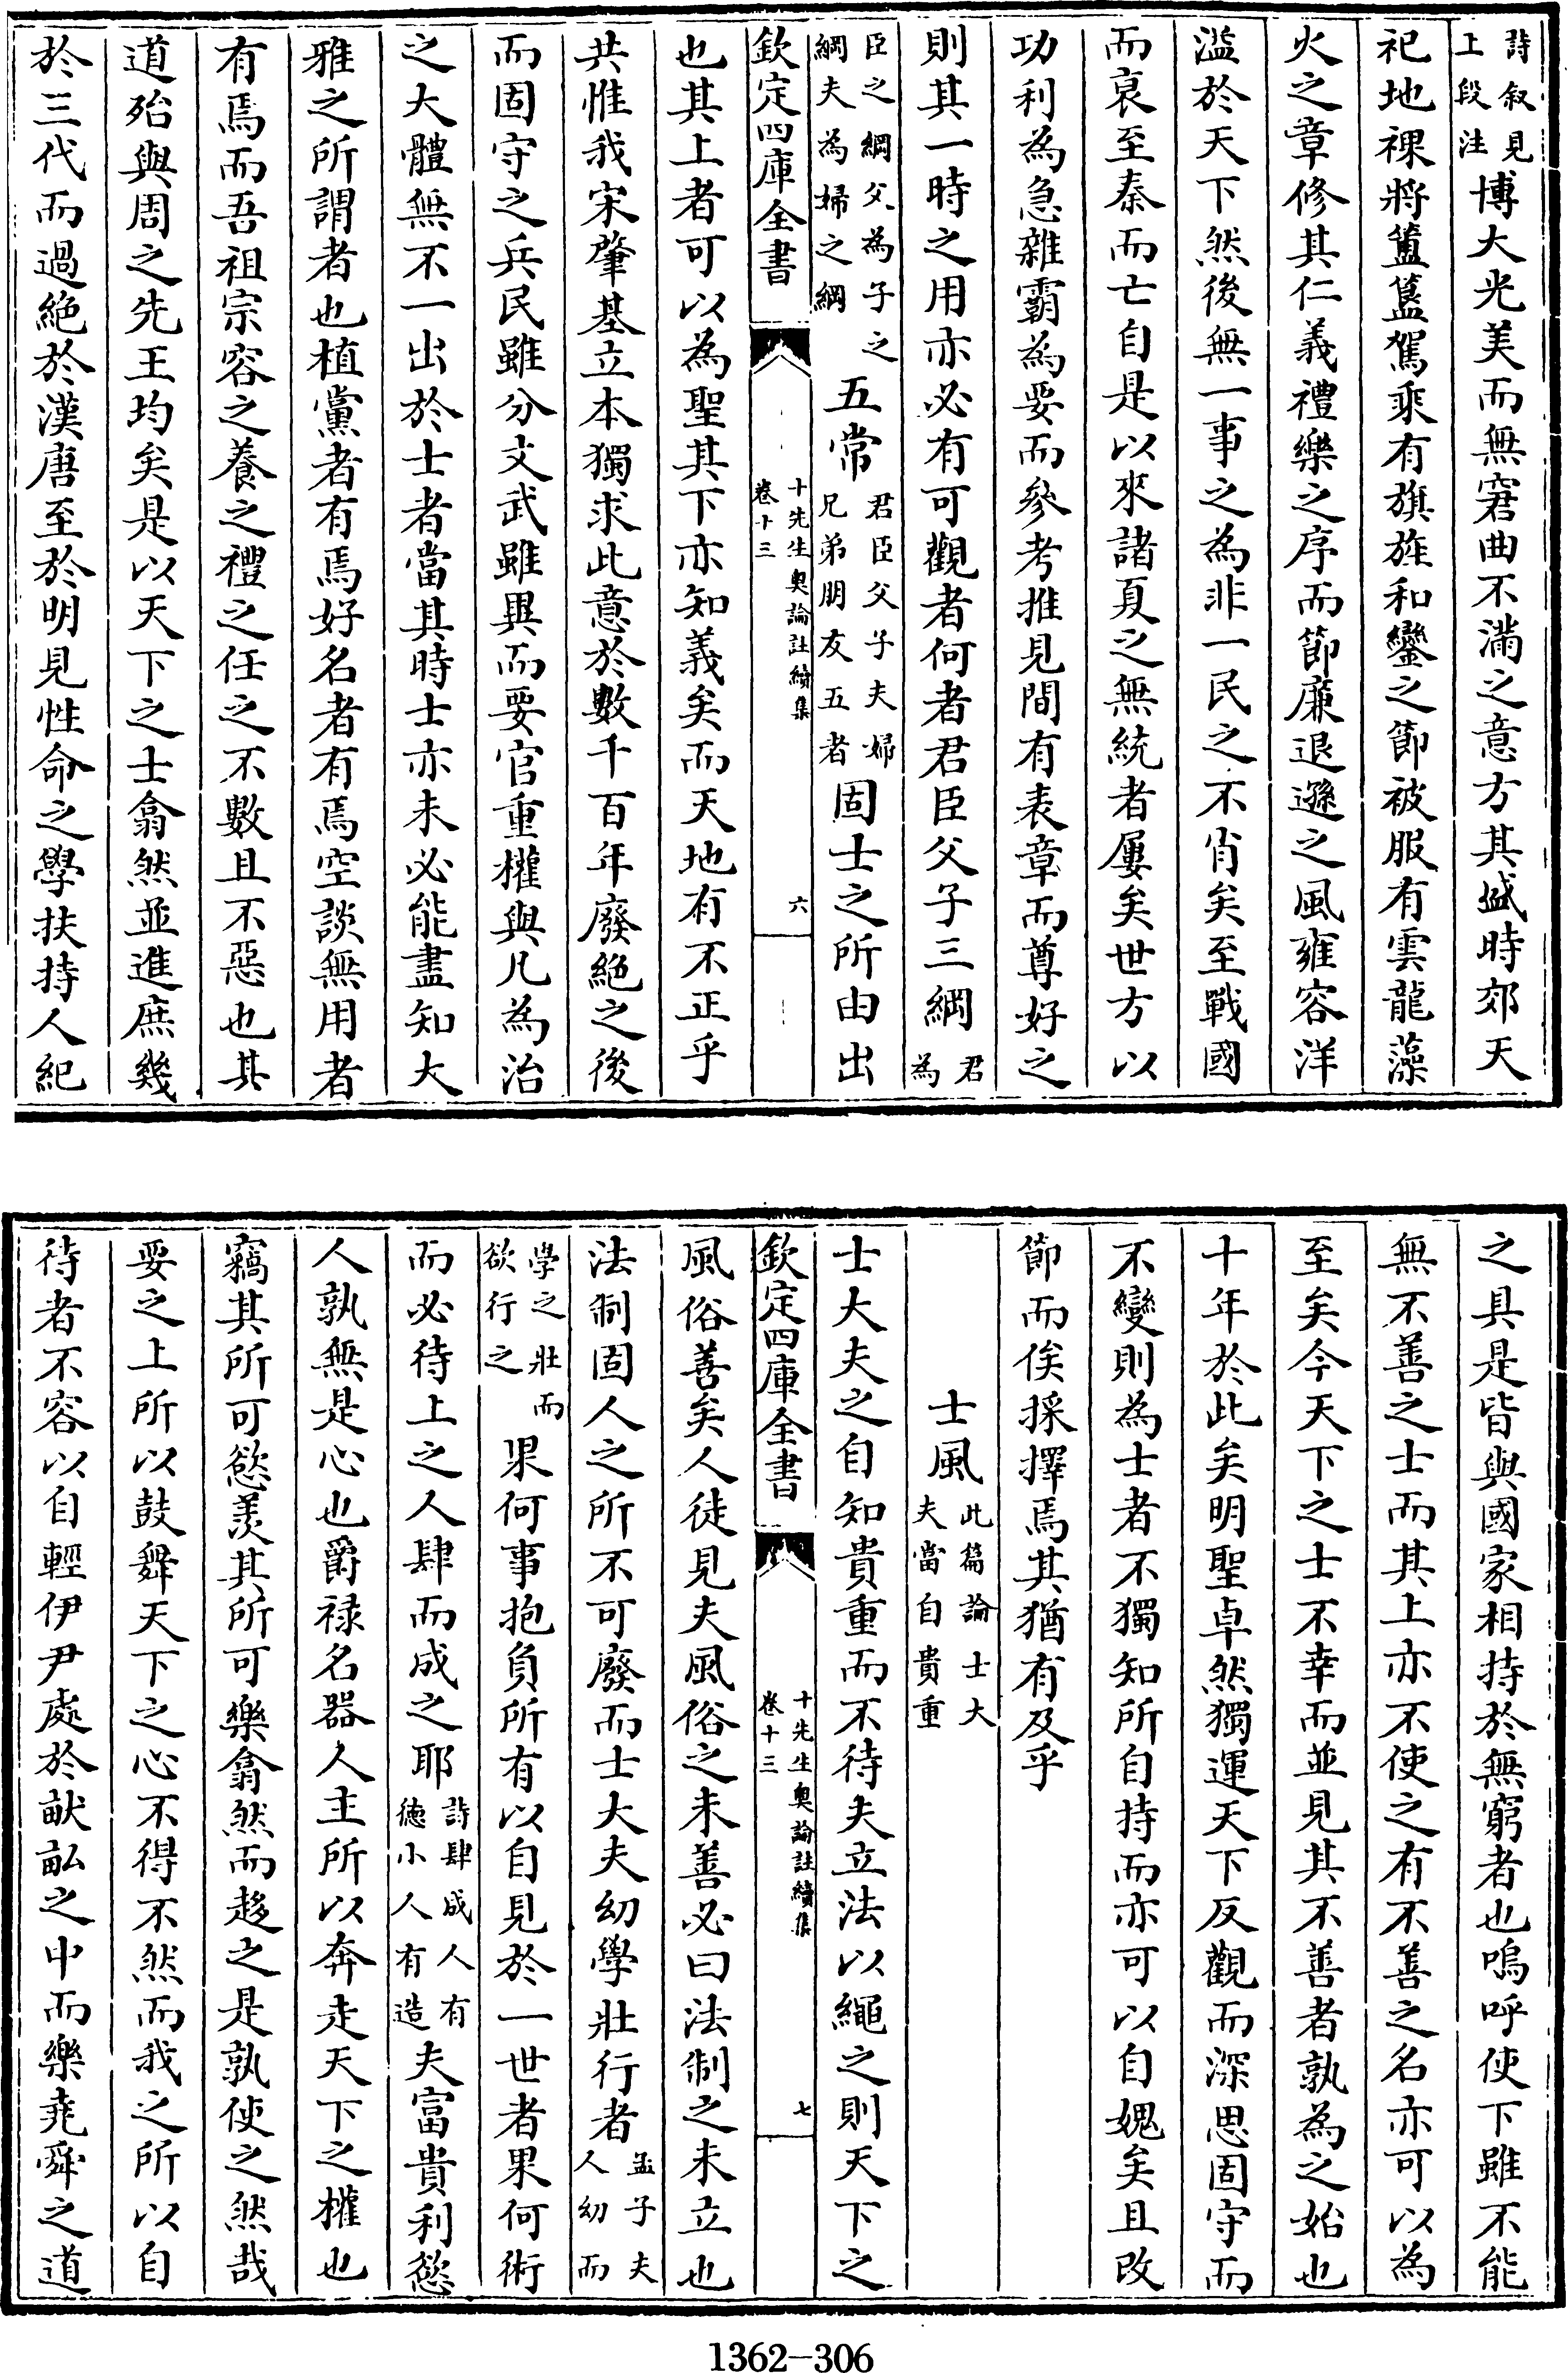 詩叙見上段注博大光美而無窘曲不滿之意方其盛時郊天
祀地祼將簠簋駕乘有旗旌和鑾之節被服有雲龍藻
火之章修其仁義禮樂之序而節廉退遜之風雍容洋
溢於天下然後無一事之為非一民之不肖矣至戰國
而衰至秦而亡自是以來諸夏之無統者屢矣世方以
功利為急雜霸為要而參考推見間有表章而尊好之
則其一時之用亦必有可觀者何者君臣父子三綱君為
臣之綱父為子之綱夫為婦之綱五常君臣父子夫婦兄弟朋友五者固士之所由出
欽定四庫全書 十先生奧論註續集卷十三 六
也其上者可以為聖其下亦知義矣而天地有不正乎
共惟我宋肇基立本獨求此意於數千百年廢絕之後
而固守之兵民雖分文武雖異而要官重權與凡為治
之大體無不一出於士者當其時士亦未必能盡知大
雅之所謂者也植黨者有焉好名者有焉空談無用者
有焉而吾祖宗容之養之禮之任之不數且不惡也其
道殆與周之先王均矣是以天下之士翕然並進庶幾
於三代而過絕於漢唐至於明見性命之學扶持人紀
之具是皆與國家相持於無窮者也嗚呼使下雖不能
無不善之士而其上亦不使之有不善之名亦可以為
至矣今天下之士不幸而並見其不善者孰為之始也
十年於此矣明聖卓然獨運天下反觀而深思固守而
不變則為士者不獨知所自持而亦可以自媿矣且改
節而俟採擇焉其猶有及乎
士風此篇論士大夫當自貴重
士大夫之自知貴重而不待夫立法以繩之則天下之
欽定四庫全書 十先生奧論註續集卷十三 七
風俗善矣人徒見夫風俗之未善必曰法制之未立也
法制固人之所不可廢而士大夫幼學壯行者孟子夫人幼而
學之壯而欲行之果何事抱負所有以自見於一世者果何術
而必待上之人肆而成之耶詩肆成人有德小人有造夫富貴利慾
人孰無是心也爵祿名器人主所以奔走天下之權也
竊其所可慾羨其所可樂翕然而趍之是孰使之然哉
要之上所以鼓舞天下之心不得不然而我之所以自
待者不容以自輕伊尹處於畎畝之中而樂堯舜之道
1362-306